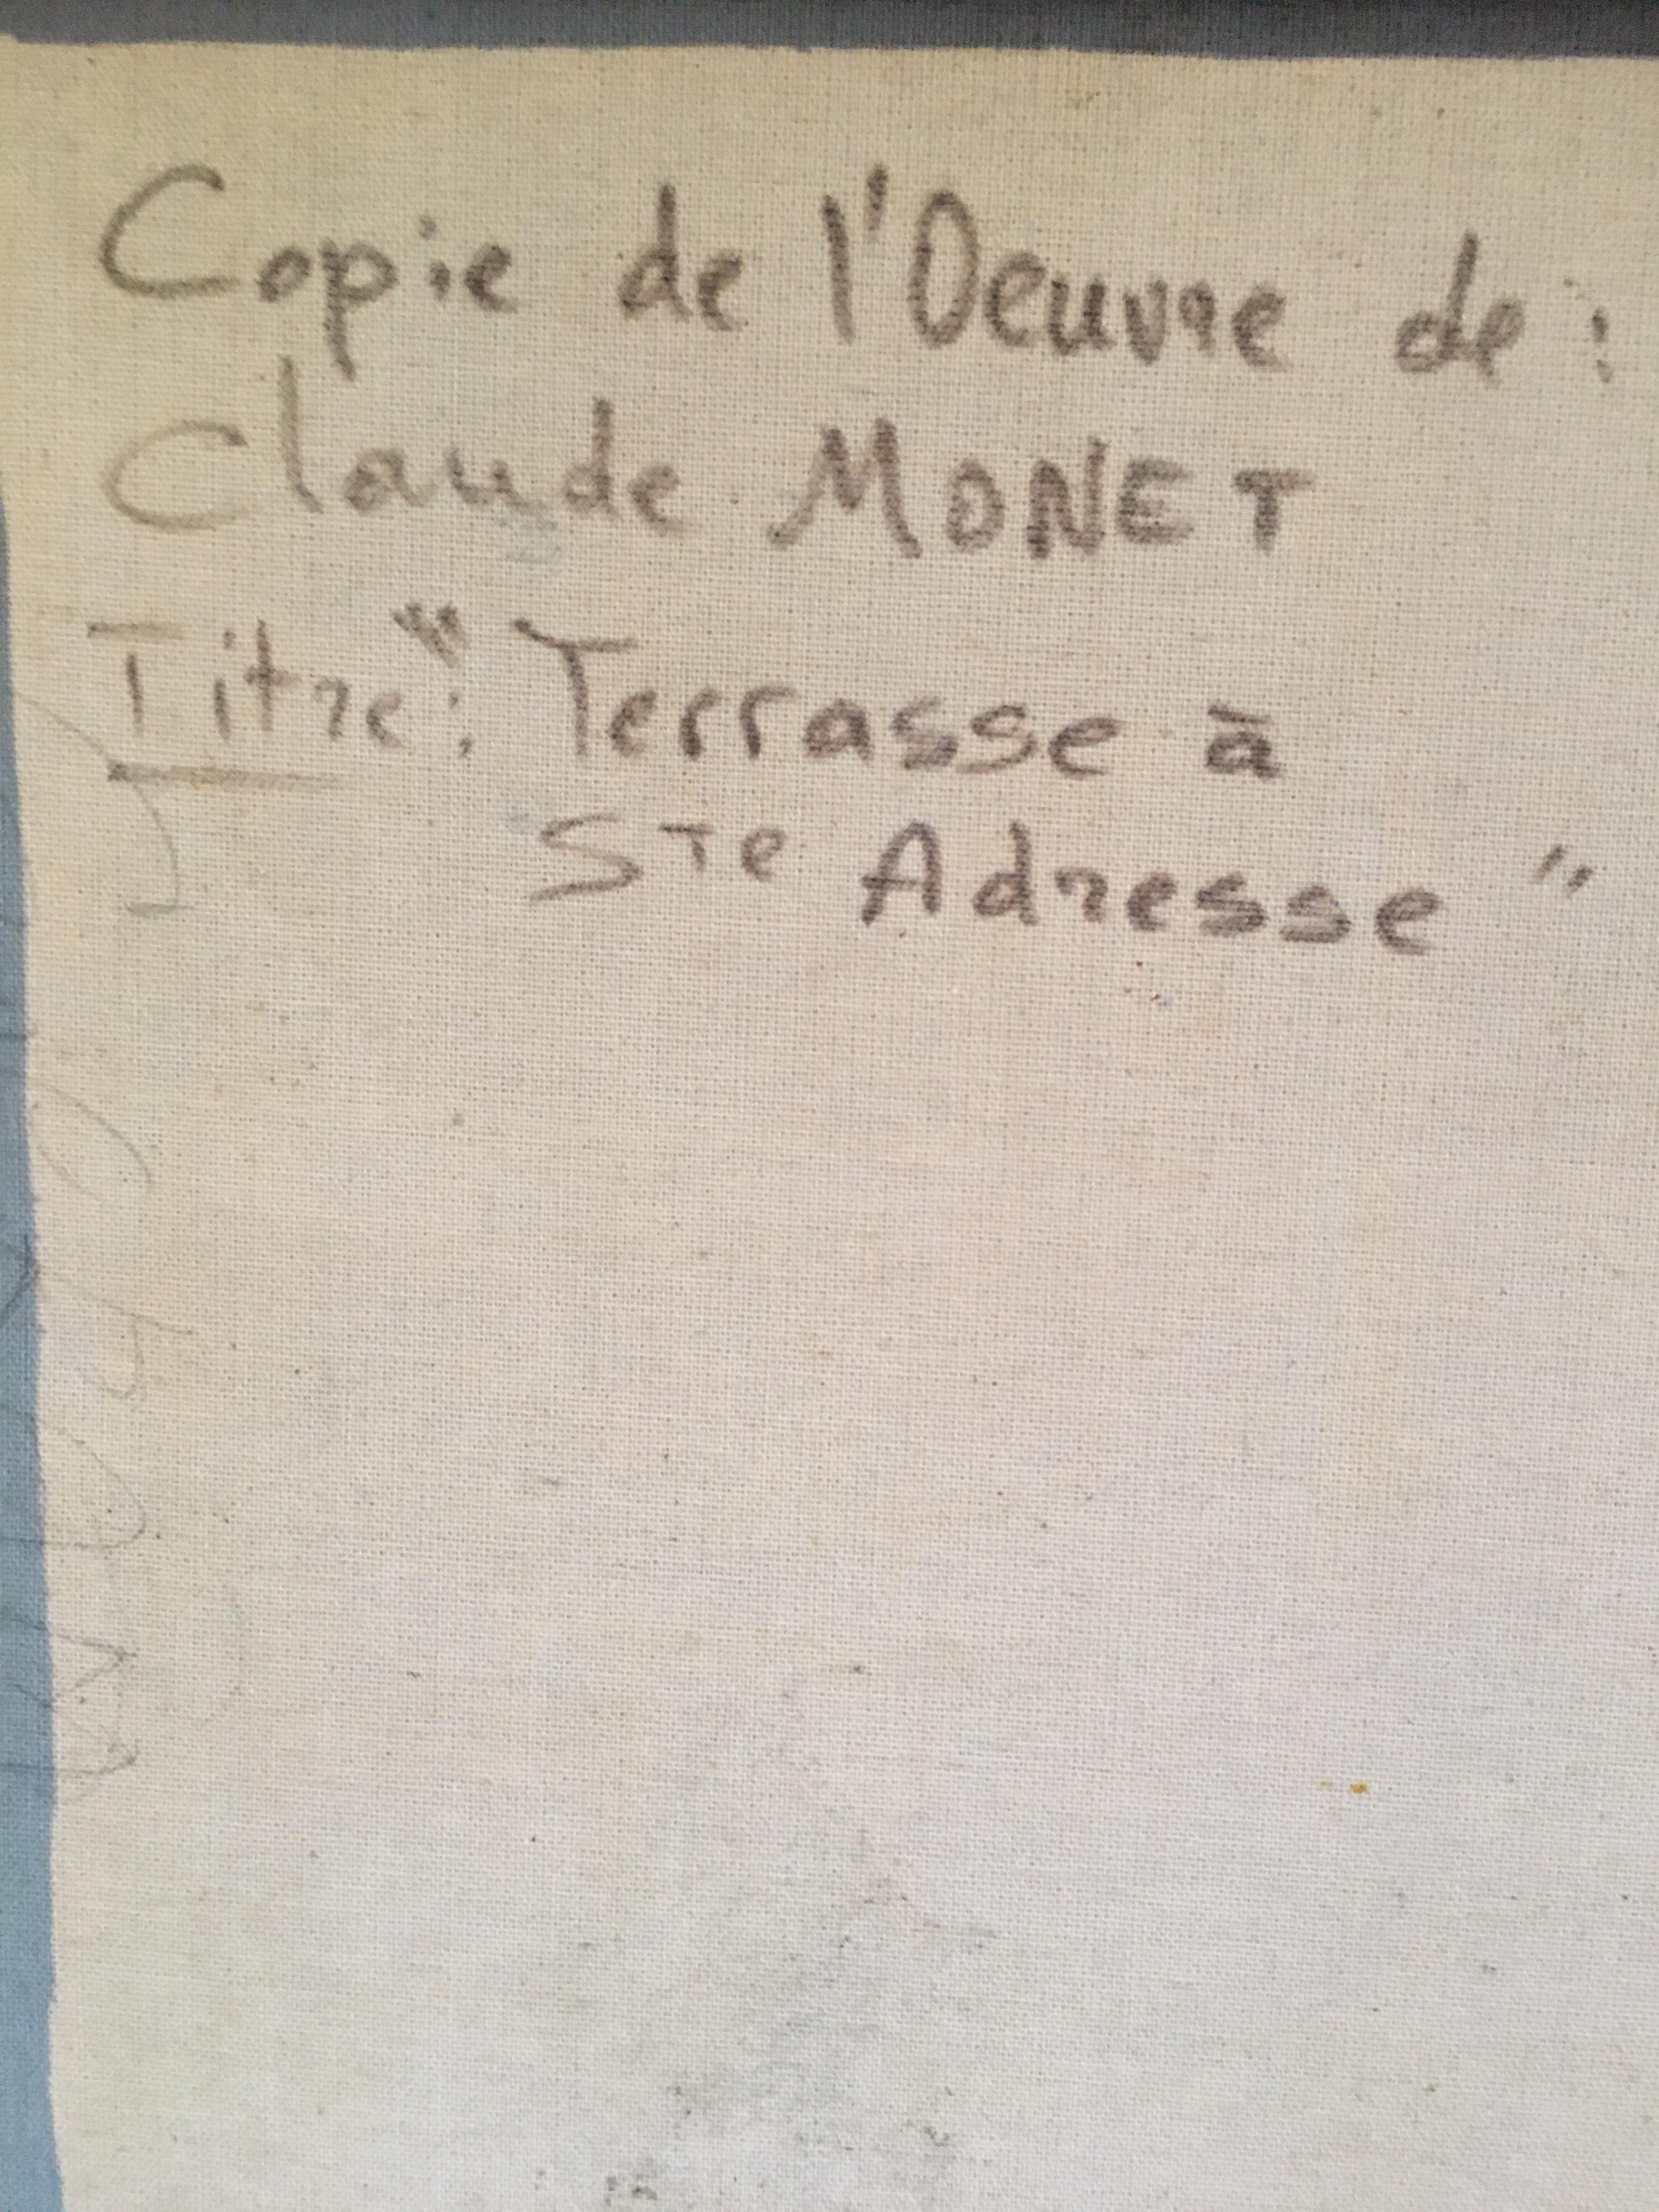 Copie de l'Oeuvre de :
Claude MONET
Titre: " Terrasse à
Ste Adresse "